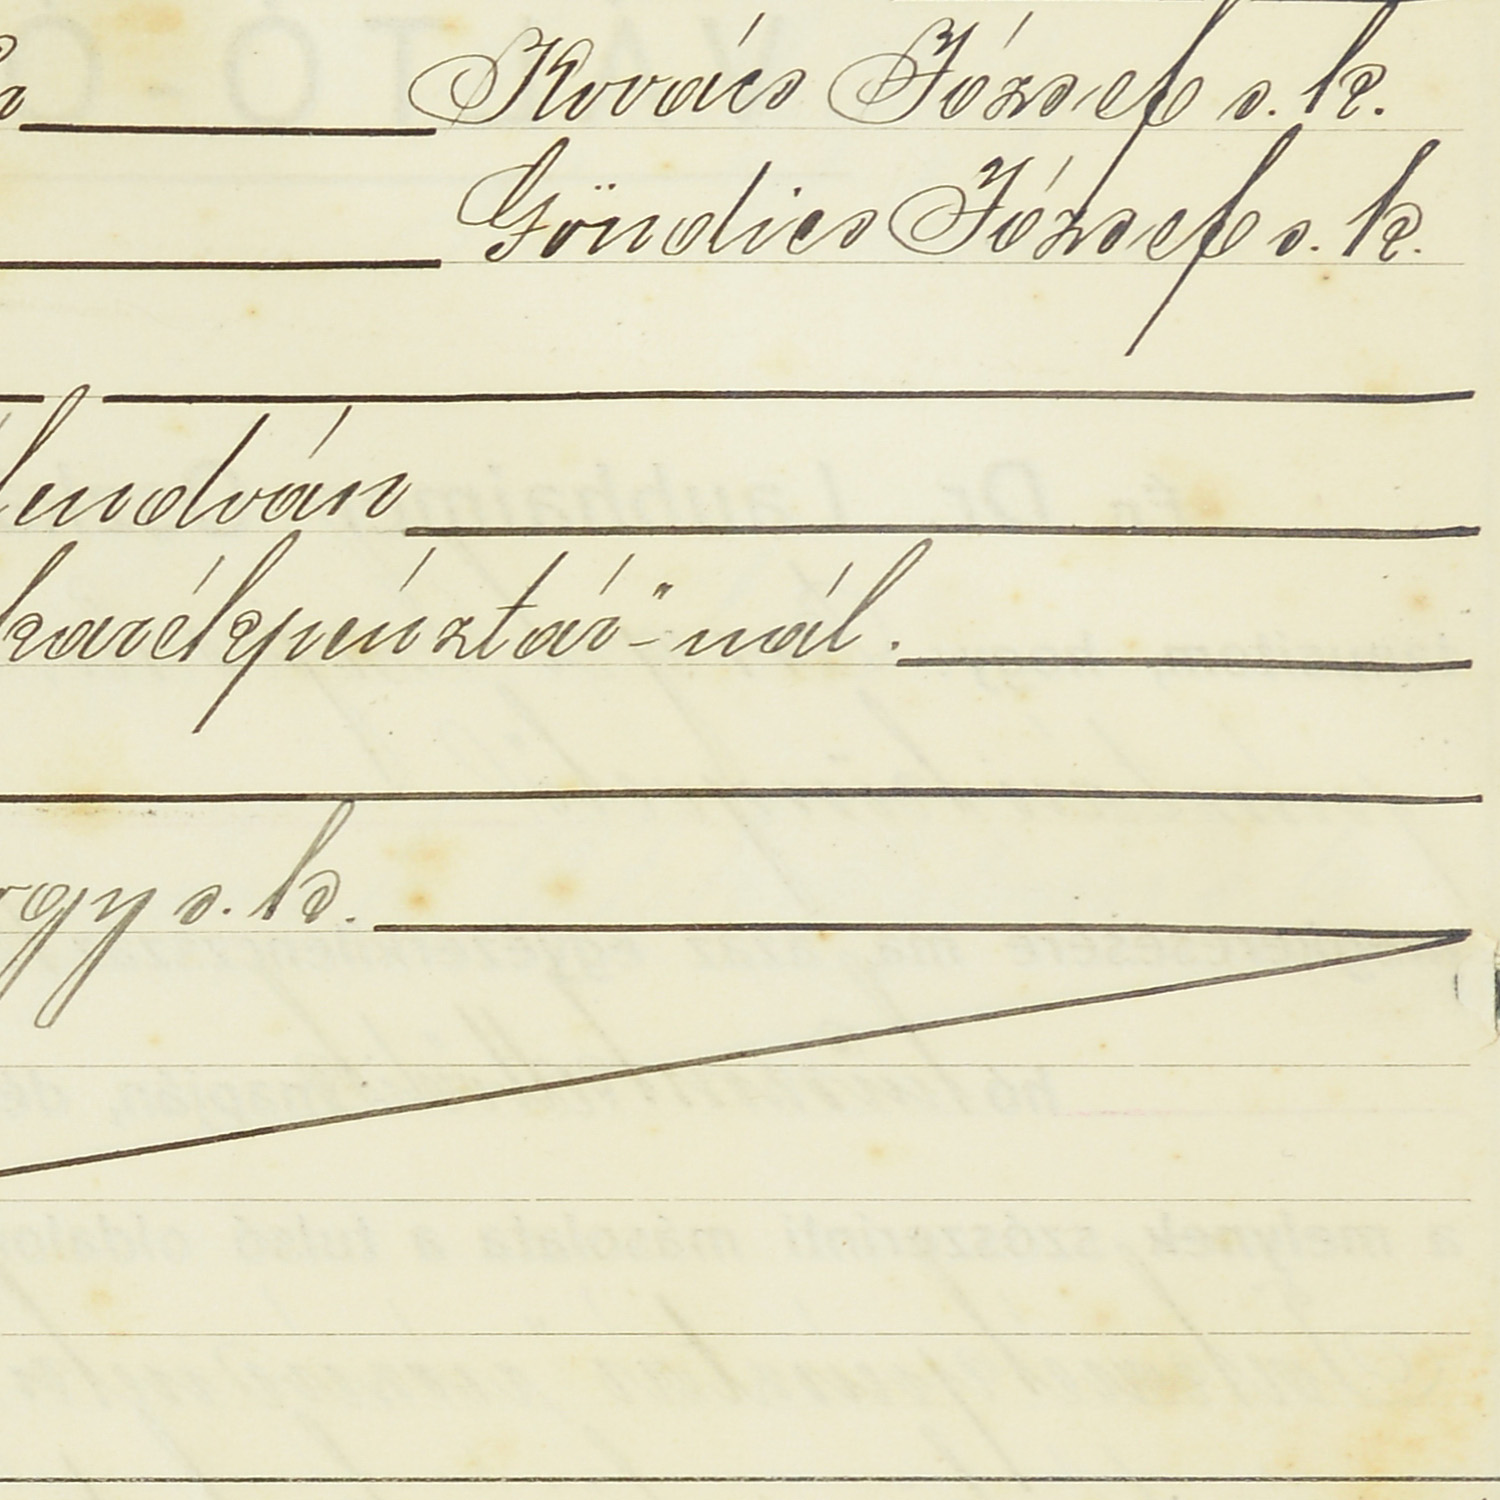 Kovács József s. k.
Göndics József s. k.
lendván
karékpénztár"-nál.
rgy s. k.